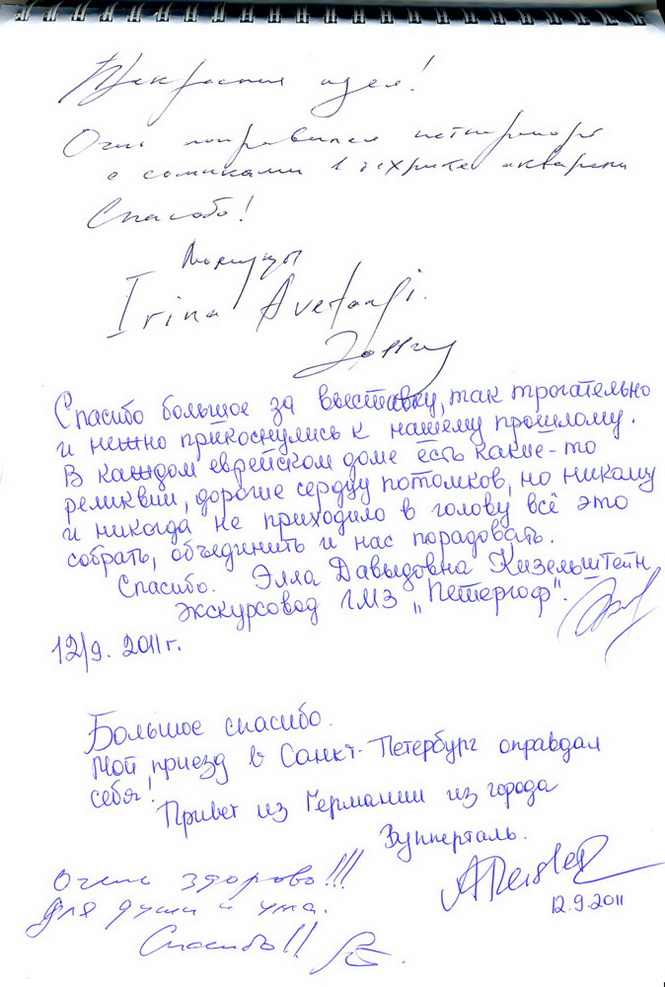 Прекрасная идея!
Очень понравился
о сомиками в технике акварели
Спасибо!
Irina
Спасибо большое за выставку, так трогательно
и нежно прикоснулись к нашему прошлому.
В каждом еврейском доме есть какие-то
реликвии, дорогие сердцу потомков, но никому
и никогда не приходило в голову всё это
собрать, объединить и нас порадовать.
Спасибо. Элла Давыдовна Кизельштейн
экскурсовод ГМЗ „Петергоф".
12/9. 2011 г.
Большое спасибо.
Мой приезд в Санкт-Петербург оправдал
себя! Привет из Германии из города
Вупперталь.
12.9.2011
Очень здорово!!!
Для души и ума.
Спасибо!!